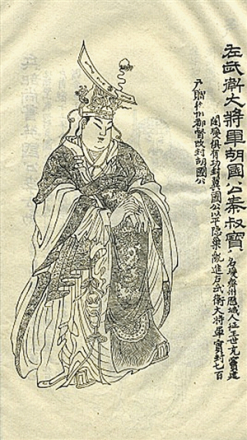 左武衛大將軍胡國公秦叔寶
名瓊齊州歷城人征王世充竇建
闥俱有功封翼國公以平隱巢亂進左武衛大將軍實封七百
戶贈徐州都督改封胡國公